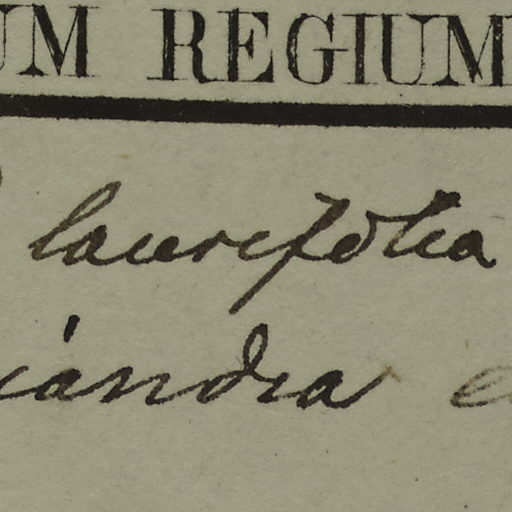 UM REGIUM
laurifolia
iandra